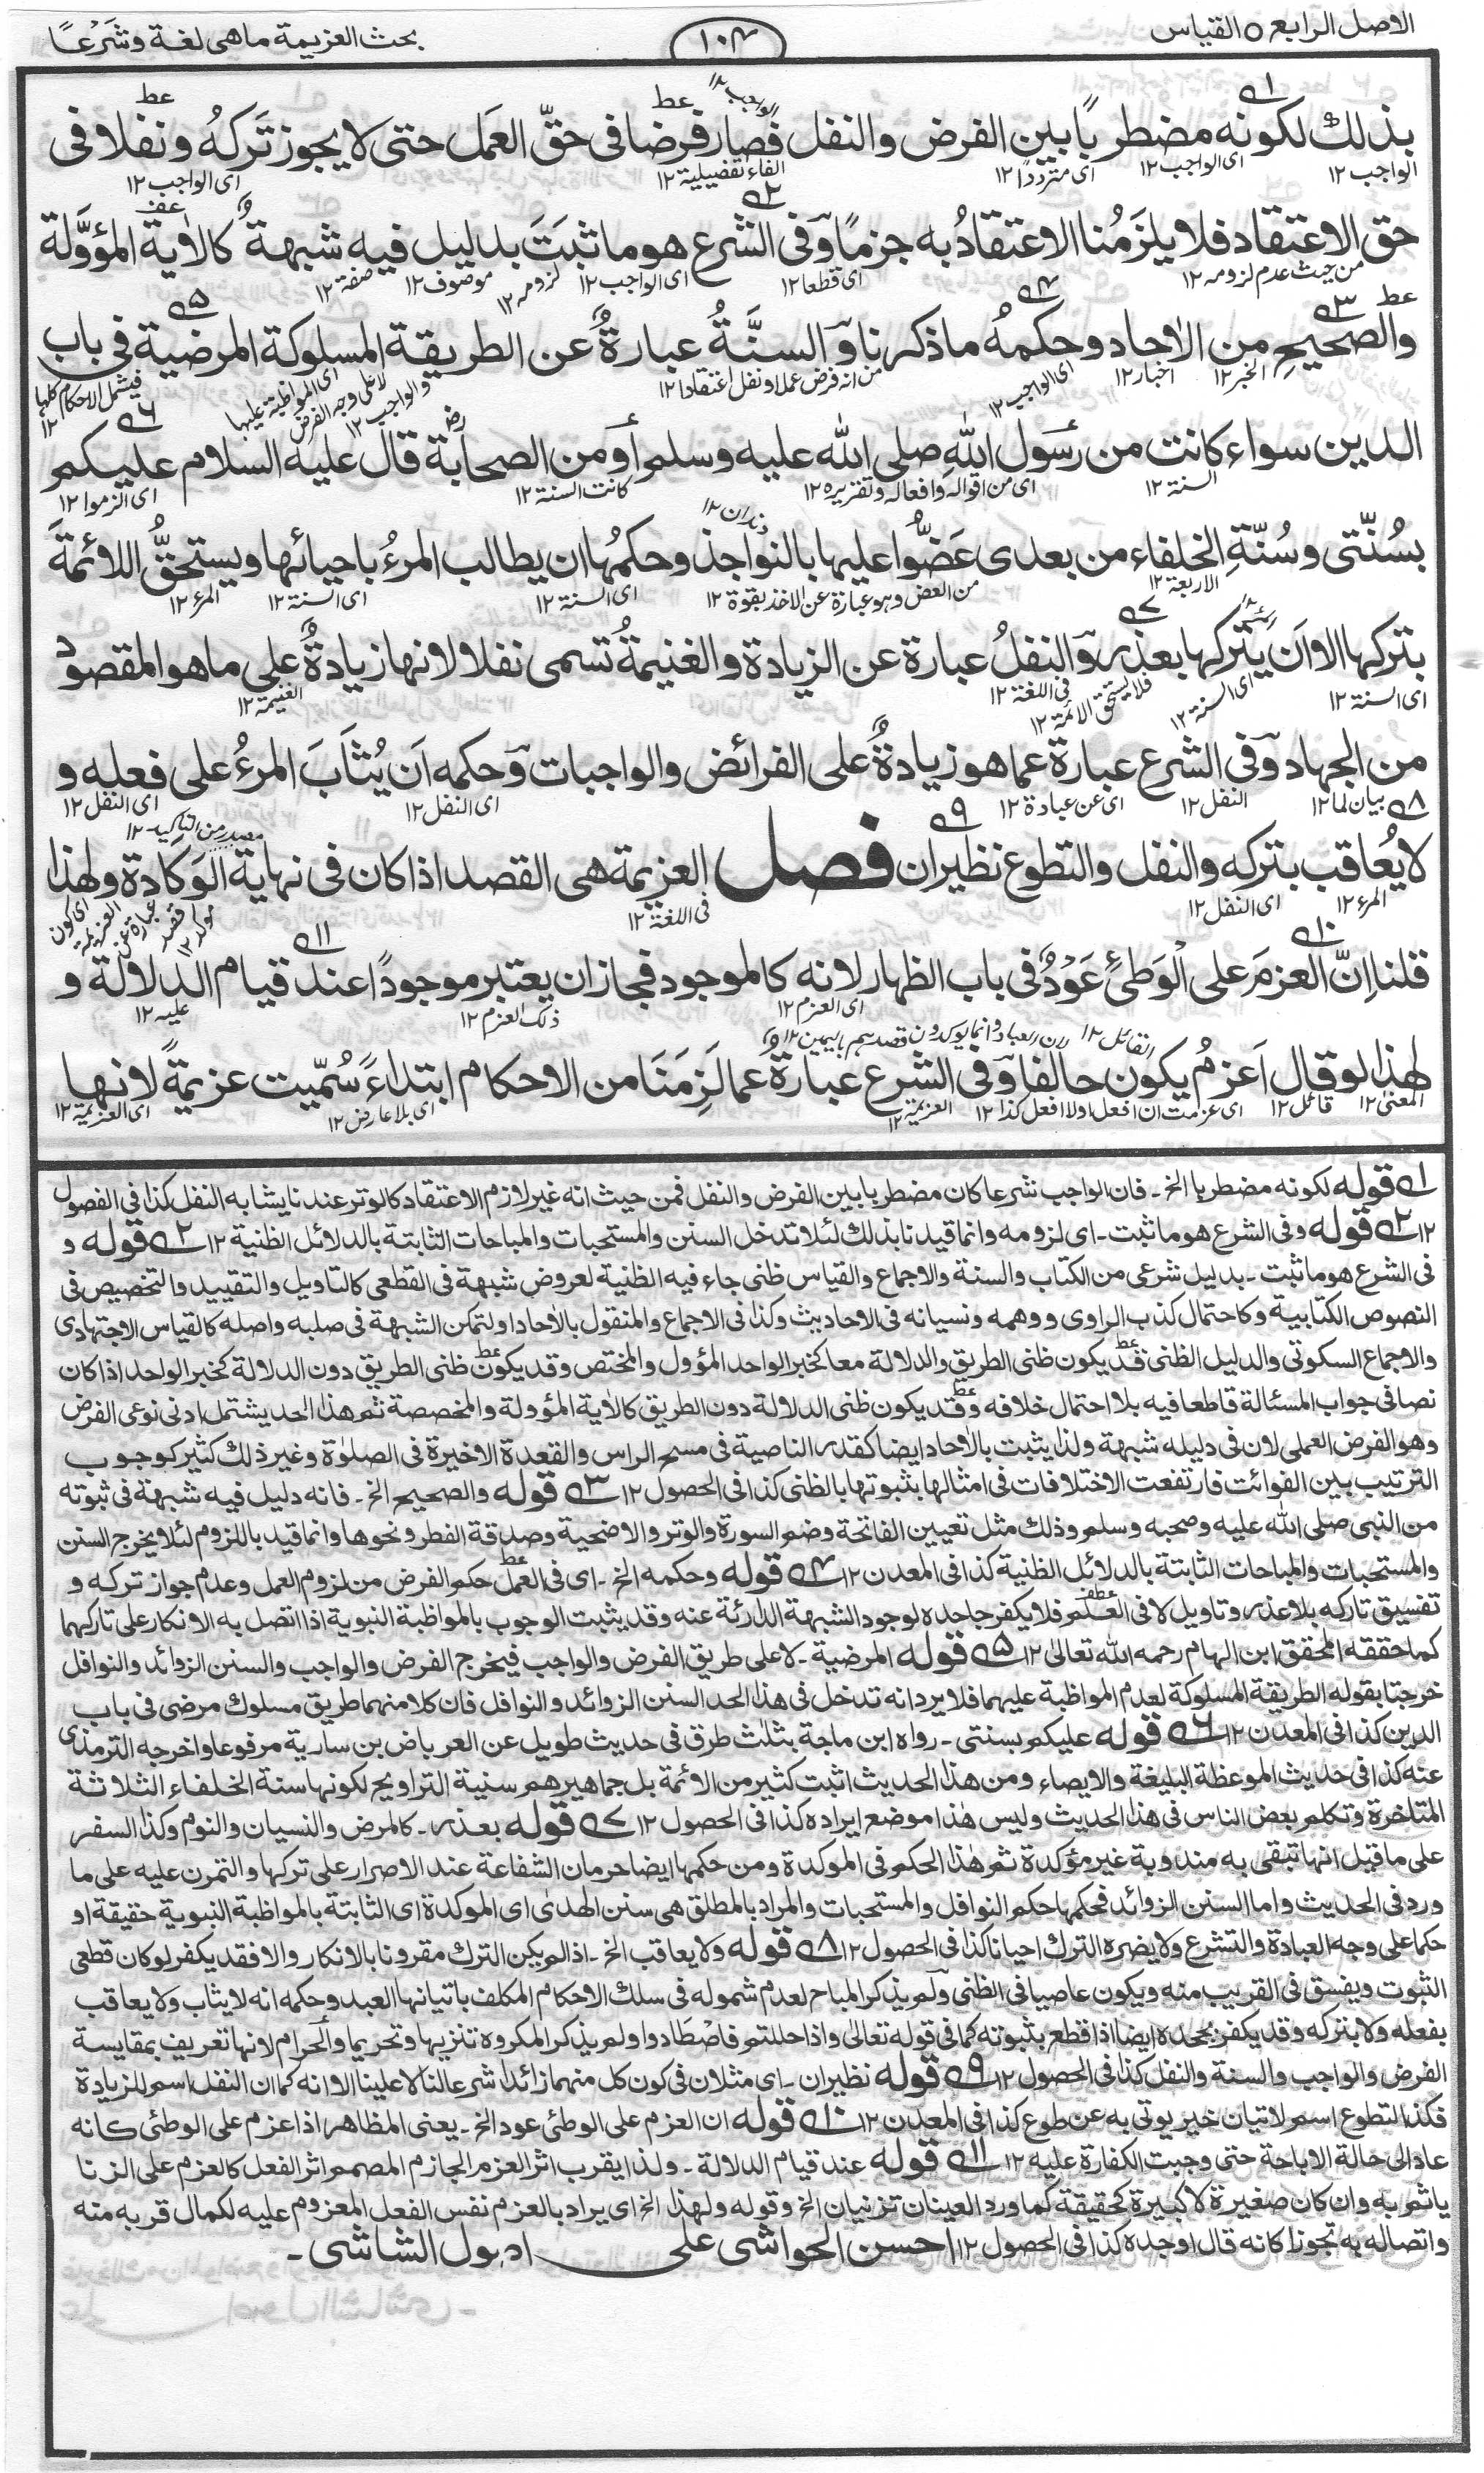 الاصل الرابع ○ القياس
١٠٤
بحث العزيمة ماهي لغة وشَرْعًا
بذلك لكونه مضطربًا بين الفرض والنفل فصار فرضا في حقّ العمَل حتى لا يجوز تَركهُ ونفلا في
حق الاعتقاد فلا يلزَمُنا الاعتقادُ به جزمًا وفي الشرع هو ما ثبَتَ بدليل فيه شبهةٌ كالاٰية المؤوَّلة
والصحيحِ من الاٰحاد وحكمهُ ما ذكرنا والسنَّةُ عبارةٌ عن الطريقة المسلوكة المرضية في باب
الدين سواء كانت من رسول اللهِ صلى الله عليه وسلم أو من الصحابة قال عليه السلام عليكم
بسُنّتي وسُنّةِ الخلفاء من بعدى عَضّوا عليها بالنواجذ وحكمُها ان يطالب المرءُ باحيائها ويستحقُّ اللائمةَ
بتركها الا اَن يتركها بعذر والنفلُ عبارة عن الزيادة والغنيمةُ تُسمى نفلا لانها زيادةٌ على ما هو المقصود
من الجهاد وفي الشرع عبارة عما هو زيادةٌ على الفرائض والواجبات وحكمه اَن يُثابَ المرءُ على فعله و
لا يُعاقب بتركه والنفل والتطوع نظيران فصل العزيمة هي القصد اذا كان في نهاية الوَكادة ولهذا
قلنا اِنَّ العزمَ على الْوَطئِ عَوْدٌ في باب الظهار لانه كالموجود فجاز ان يعتبر موجودًا عند قيام الدلالة و
لهذا لو قال اَعزمُ يكون حالفا وفي الشرع عبارةٌ عما لَزِمَنَا من الاحكام ابتداءً سُمّيت عزيمةً لانها
١ قوله لكونه مضطربا الخ ۔ فان الواجب شرعا كان مضطربا بين الفرض والنفل فمن حيث انه غير لازم الاعتقاد كالوتر عندنا يشابه النفل كذا في الفصول
١٢ ٢ قوله وفي الشرع هو ما ثبت ۔ اى لزومه وانما قيدنا بذلك لئلا تدخل السنن والمستحبات والمباحات الثابتة بالدلائل الظنية ١٢ ٢ قوله و
في الشرع هو ما ثبت ۔ بدليل شرعي من الكتاب والسنة والاجماع والقياس ظني جاء فيه الظنية لعروض شبهة في القطعي كالتاويل والتقييد والتخصيص في
النصوص الكتابية وكاحتمال كذب الراوى ووهمه ونسيانه في الاحاديث وكذا في الاجماع والمنقول بالاٰحاد او لتمكن الشبهة في صلبه واصله كالقياس الاجتهادى
والاجماع السكوتي والدليل الظني قد يكون ظني الطريق والدلالة معا كخبر الواحد المؤول والمختص وقد يكون ظني الطريق دون الدلالة كخبر الواحد اذا كان
نصا في جواب المسئالة قاطعا فيه بلا احتمال خلافه وقد يكون ظني الدلالة دون الطريق كالاٰية المؤولة والمخصصة ثم هذا الحد يشتمل ادنى نوعي الفرض
وهو الفرض العملي لان في دليله شبهة ولذا يثبت بالاٰحاد ايضا كقدر الناصية في مسح الراس والقعدة الاخيرة في الصلوٰة وغير ذلك كثير كوجوب
الترتيب بين الفوائت فارتفعت الاختلافات في امثالها بثبوتها بالظني كذا في الحصول ١٢ ٣ قوله والصحيح الخ ۔ فانه دليل فيه شبهة في ثبوته
من النبي صلى الله عليه وصحبه وسلم وذلك مثل تعيين الفاتحة وضم السورة والوتر والاضحية وصدقة الفطر ونحوها وانما قيد باللزوم لئلا يخرج السنن
والمستحبات والمباحات الثابتة بالدلائل الظنية كذا في المعدن ١٢ ٤ قوله وحكمه الخ ۔ اى في العمل حكم الفرض من لزوم العمل وعدم جواز تركه و
تفسيق تاركه بلا عذر وتاويل لا في العلم فلا يكفر جاحده لوجود الشبهة الدارئة عنه وقد يثبت الوجوب بالمواظبة النبوية اذا اتصل به الانكار على تاركهما
كما حققه المحقق ابن الهام رحمه الله تعالىٰ ١٢ ٥ قوله المرضية ۔ لا على طريق الفرض والواجب فيخرج الفرض والواجب والسنن الزوائد والنوافل
خرجتا بقوله الطريقة المسلوكة لعدم المواظبة عليهما فلا يرد انه تدخل في هذا الحد السنن الزوائد والنوافل فان كلا منهما طريق مسلوك مرضي في باب
الدين كذا في المعدن ١٢ ٦ قوله عليكم بسنتي ۔ رواه ابن ماجة بثلٰث طرق في حديث طويل عن العرباض بن سارية مرفوعا واخرجه الترمذى
عنه كذا في حديث الموعظة البليغة والايصاء ومن هذا الحديث اثبت كثير من الائمة بل جماهيرهم سنية التراويح لكونها سنة الخلفاء الثلاثة
المتاخرة وتكلم بعض الناس في هذا الحديث وليس هٰذا موضع ايراده كذا في الحصول ١٢ ٧ قوله بعذر ۔ كالمرض والنسيان والنوم وكذا السفر
على ما قيل انها تبقى به مندوبة غير مؤكدة ثم هٰذا الحكم في الموكدة ومن حكمها ايضا حرمان الشفاعة عند الاصرار على تركها والتمرن عليه على ما
ورد في الحديث واما السنن الزوائد فحكمها حكم النوافل والمستحبات والمراد بالمطلق هي سنن الهدىٰ اى الموكدة اى الثابتة بالمواظبة النبوية حقيقة او
حكما على وجه العبادة والتشرع ولا يضره الترك احيانا كذا في الحصول ١٢ ٨ قوله ولا يعاقب الخ ۔ اذا لم يكن الترك مقرونا بالانكار والا فقد يكفر لو كان قطعي
الثبوت ويفسق في القريب منه ويكون عاصيا في الظني ولم يذكر المباح لعدم شموله في سلك الاحكام المكلف باتيانها العبد وحكمه انه لا يثاب ولا يعاقب
بفعله ولا بتركه وقد يكفر بجحده ايضا اذا قطع بثبوته كما في قوله تعالىٰ واذا حللتم فاصْطَادوا ولم يذكر المكروه تنزيها وتحريما والحرام لانها تعريف بمقايسة
الفرض والواجب والسنة والنفل كذا في الحصول ١٢ ٩ قوله نظيران ۔ اى مثلان في كون كل منهما زائدا شرعا لنا لا علينا الا انه كما ان النفل اسم للزيادة
فكذا التطوع اسم لاتيان خير يوتى به عن طوع كذا في المعدن ١٢ ١٠ قوله ان العزم على الوطئ عود الخ ۔ يعنى المظاهر اذا عزم على الوطئ كانه
عاد الى حالة الاباحة حتى وجبت الكفارة عليه ١٢ ١١ قوله عند قيام الدلالة ۔ ولذا يقرب اثر العزم الجازم المصمم اثر الفعل كالعزم على الزنا
ياثم به وان كان صغيرة لا كبيرة كحقيقة كما ورد العينان تزنيان الخ وقوله ولهذا الخ اى يراد بالعزم نفس الفعل المعزوم عليه لكمال قربه منه
واتصاله به تجوزا كانه قال اوجده كذا في الحصول ١٢ احسن الحواشي على اصول الشاشي ۔